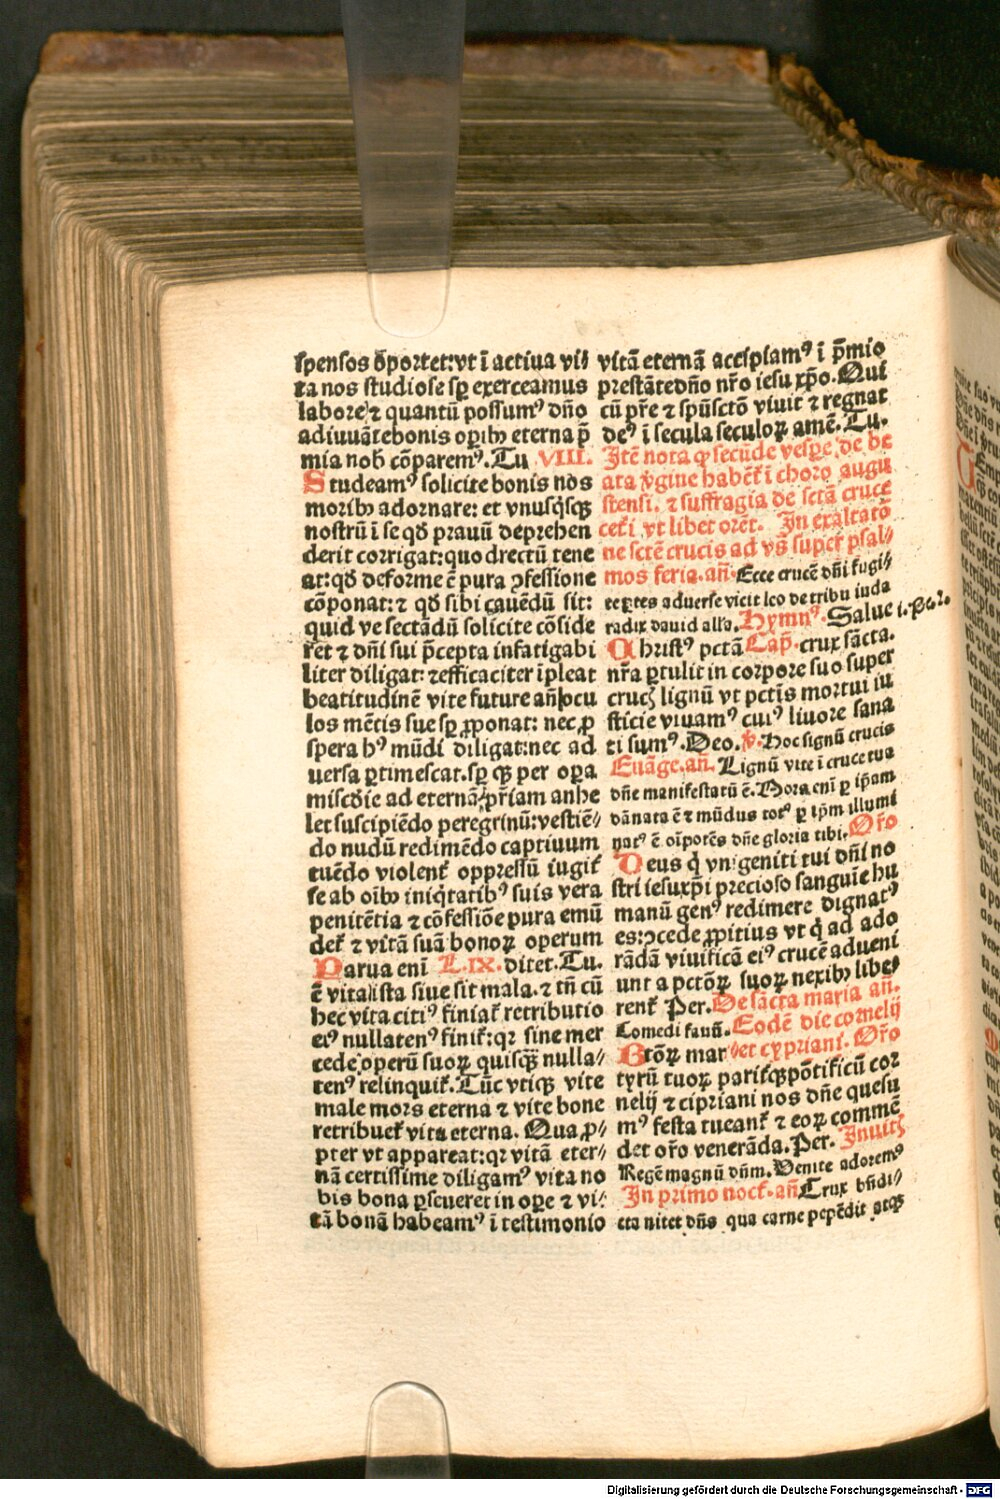 spensos oportet: vt ī actiua vi⸗
ta nos studiose sꝑ exerceamus
labore ⁊ quantū possumꝰ dn̄o
adiuuāte bonis oꝑibꝫ eterna p̄
mia nob̄ cōparemꝰ. Tu VIII.
Studeamꝰ solicite bonis nos
moribꝫ adornare: et vnusq̇sqꝫ
nostrū ī se qḋ prauū deprehen
derit corrigat: quo drectū tene
at: qḋ deforme ē pura ꝯfessione
cōponat: ⁊ qḋ sibi cauēdū sit:
quid ve sectādū solicite cōside
ret ⁊ dn̄i sui p̄cepta infatigabi
liter diligat: ⁊ efficaciter īpleat
beatitudinē vite future an̄ ocu
los mētis sue sꝑ ꝓponat: nec ꝓ
spera hꝰ mūdi diligat: nec ad
uersa ꝑtimescat. sꝑ qꝫ per oꝑa
miscd̄ie ad eternā pr̄iam anhe
let suscipiēdo peregrinū: vestiē⸗
do nudū redimēdo captiuum
tuēdo violent᷑ oppressū iugit᷑
se ab oībꝫ iniq̇tatibꝰ suis vera
penitētia ⁊ cōfessiōe pura emū
det᷑ ⁊ vitā suā bonoꝝ operum
Parua enī L.IX. ditet. Tu.
ē vita ista siue sit mala. ⁊ tn̄ cū
hec vita citiꝰ finiat᷑ retributio
eiꝰ nullatenꝰ finit᷑: qꝛ sine mer
cede operū suoꝝ quisqꝫ nulla⸗
tenꝰ relinquit᷑. Tūc vtiqꝫ vite
male mors eterna ⁊ vite bone
retribuet᷑ vita eterna. Qua ꝓ⸗
pter vt appareat: qꝛ vitā eter⸗
nā certissime diligamꝰ vita no
bis bona ꝑseueret in oꝑe ⁊ vi⸗
tā bonā habeamꝰ ī testimonio
vitā eternā accipiamꝰ ī p̄mio
prestāte dn̄o nr̄o iesu xp̄o. Qui
cū pr̄e ⁊ spūsctō viuit ⁊ regnat
deꝰ ī secula seculoꝝ amē. Tu.
Itē nota ꝙ secūde vesꝑe de be
ata v̄gine habēt᷑ ī choro augu
stensi. ⁊ suffragia de sctā cruce
cet᷑i vt libet orēt. In exaltatō
ne sctē crucis ad vs̄ super psal⸗
mos feria. an̄. Ecce crucē dn̄i fugi⸗
te ꝑtes aduerse vicit leo de tribu iuda
radix dauid alla. Hymnꝰ. Salue
Christꝰ pctā Cap̄. crux sācta.
nr̄a ꝑtulit in corpore suo super
crucꝭ lignū vt pctīs mortui iu
sticie viuamꝰ cuiꝰ liuore sana
ti sumꝰ. Deo. ℣. Hoc signū crucis
Euāge. an̄. Lignū vite ī cruce tua
dn̄e manifestatū ē. Nora eni ꝑ ip̄am
dānata ē ⁊ mūdus totꝰ ꝑ ip̄m illumi
natꝰ ē oīpotēs dn̄e gloria tibi. Oro
Deus q̇ vnigeniti tui dn̄i no
stri iesu xp̄i precioso sanguīe hu
manū genꝰ redimere dignatꝰ
es: ꝯcede ꝓpitius vt q̇ ad ado
rādā viuificā eiꝰ crucē adueni
unt a pctōꝝ suoꝝ nexibꝫ libe⸗
rent᷑ Per. De sācta maria an̄.
Comedi fauū. Eodē die cornelij
Btōꝝ mar⸗ et cypriani. Oro
tyrū tuoꝝ parit᷑qꝫ pōtificū cor
nelij ⁊ cipriani nos dn̄e quesu
mꝰ festa tueant᷑ ⁊ eoꝝ commē
det or̄o venerāda. Per. Inuitꝭ
Regē magnū dn̄m. Venite adoremꝰ
In primo noct᷑. an̄ Crux bn̄di⸗
cta nitet dn̄s qua carne pepēdit atqꝫ
Digitalisierung gefördert durch die Deutsche Forschungsgemeinschaft - DFG